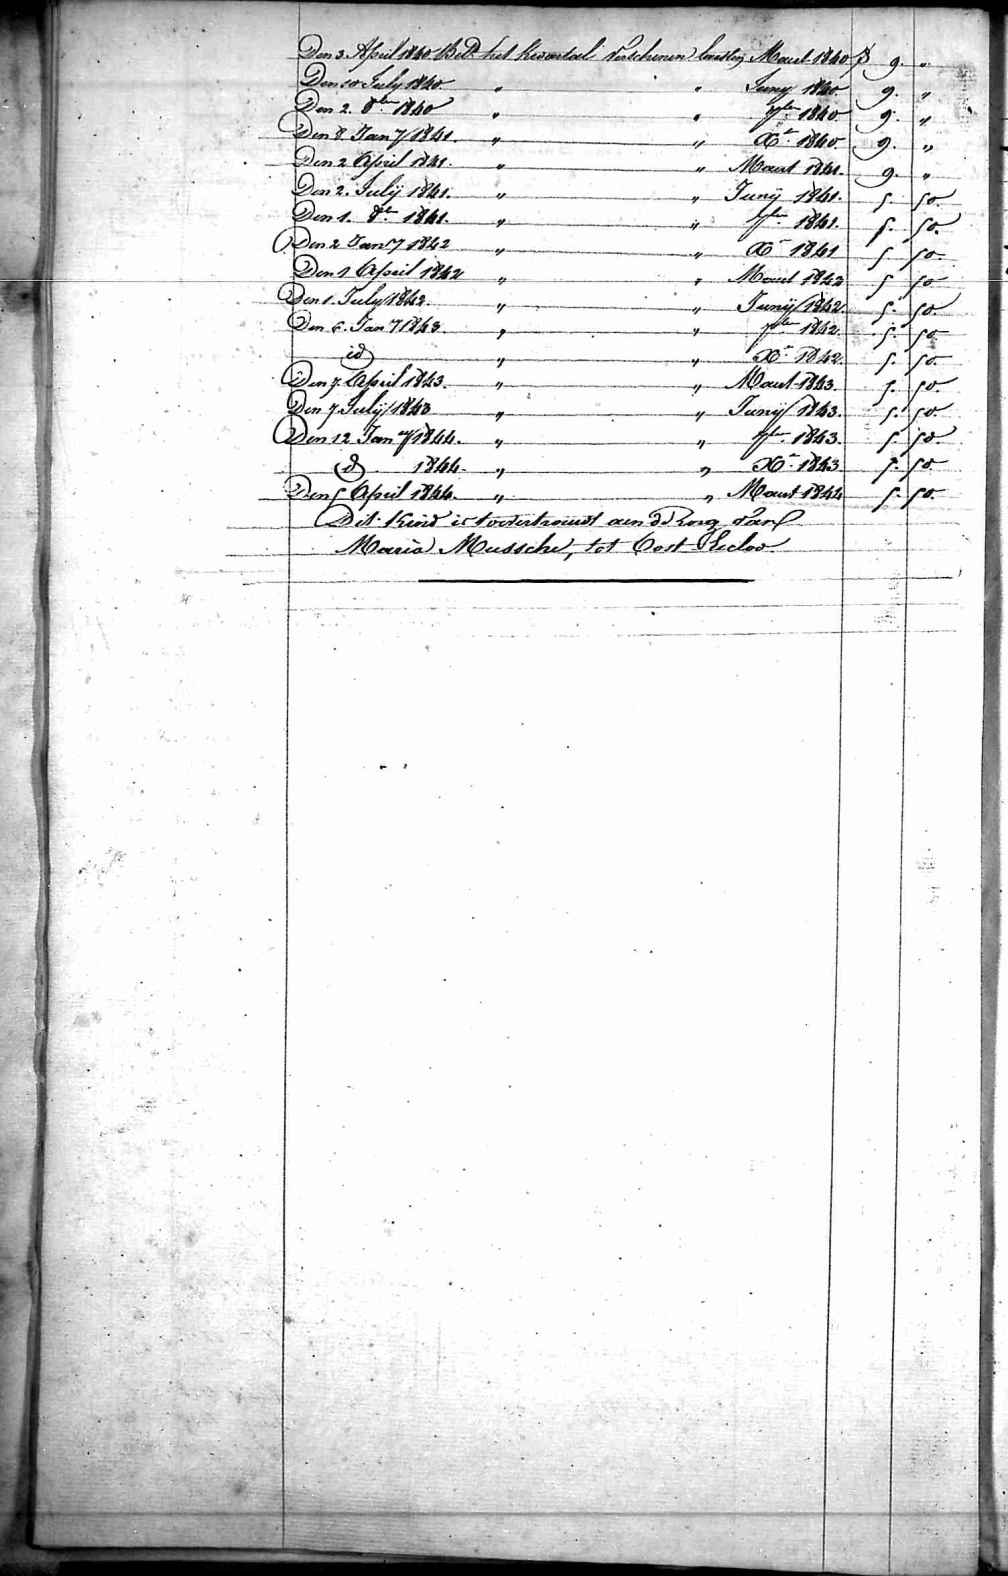 Den 3. April 1840 Bet. het kwartael verschenen laatsten Maart 1840 f 9. "
Den 10 July 1840. " " Juny 1840 9. "
Den 2. 8ber 1840 " " 7ber 1840 9. "
Den 8 Jany 1841. " " Xr 1840. 9. "
Den 2 April 1841. " " Maart 1841. 9. "
Den 2. Julÿ 1841. " " Junÿ 1841. 5. 50.
Den 1. 8br 1841. " " 7ber 1841. 5. 50.
Den 2 Jany 1842 " " Xr 1841 5 50.
Den 1 April 1842 " " Maart 1842 5 50.
Den 1. July 1842. " " Junÿ 1842. 5. 50.
Den 6. Jany 1843. " " 7ber 1842. 5. 50.
id " " Xr 1842. 5. 50.
Den 7. April 1843. " " Maart 1843. 5. 50.
Den 7. Julÿ 1843 " " Junÿ 1843. 5. 50.
Den 12 Jany 1844. " " 7ber 1843. 5. 50
d 1844. " " Xr 1843 5. 50.
Den 5 April 1844. " " Maart 1844 5. 50.
Dit Kind is toevertrouwt aen d Zorg van
Maria Mussche, tot Oost Eecloo